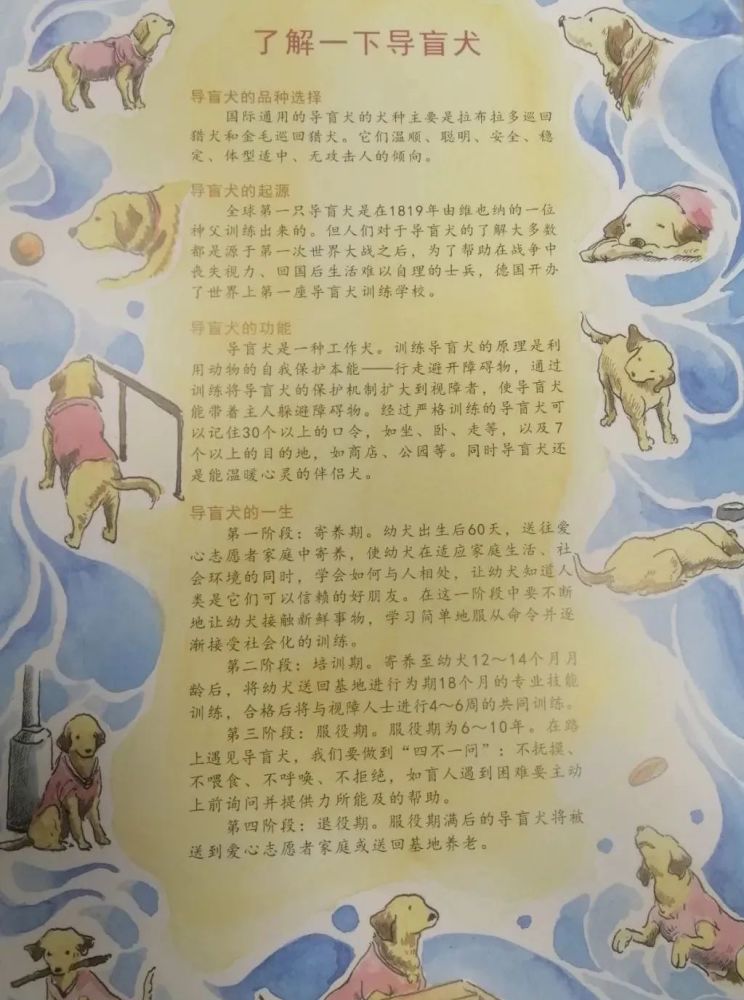 了解一下导盲犬
导盲犬的品种选择
国际通用的导盲犬的犬种主要是拉布拉多巡回
猎犬和金毛巡回猎犬。它们温顺、聪明、安全、稳
定、体型适中、无攻击人的倾向。
导盲犬的起源
全球第一只导盲犬是在1819年由维也纳的一位
神父训练出来的。但人们对于导盲犬的了解大多数
都是源于第一次世界大战之后，为了帮助在战争中
丧失视力、回国后生活难以自理的士兵，德国开办
了世界上第一座导盲犬训练学校。
导盲犬的功能
导盲犬是一种工作犬。训练导盲犬的原理是利
用动物的自我保护本能——行走避开障碍物，通过
训练将导盲犬的保护机制扩大到视障者，使导盲犬
能带着主人躲避障碍物。经过严格训练的导盲犬可
以记住30个以上的口令，如坐、卧、走等，以及7
个以上的目的地，如商店、公园等。同时导盲犬还
是能温暖心灵的伴侣犬。
导盲犬的一生
第一阶段：寄养期。幼犬出生后60天，送往爱
心志愿者家庭中寄养，使幼犬在适应家庭生活、社
会环境的同时，学会如何与人相处，让幼犬知道人
类是它们可以信赖的好朋友。在这一阶段中要不断
地让幼犬接触新鲜事物，学习简单地服从命令并逐
渐接受社会化的训练。
第二阶段：培训期。寄养至幼犬12～14个月月
龄后，将幼犬送回基地进行为期18个月的专业技能
训练，合格后将与视障人士进行4～6周的共同训练。
第三阶段：服役期。服役期为6～10年。在路
上遇见导盲犬，我们要做到“四不一问”：不抚摸、
不喂食、不呼唤、不拒绝，如盲人遇到困难要主动
上前询问并提供力所能及的帮助。
第四阶段：退役期。服役期满后的导盲犬将被
送到爱心志愿者家庭或送回基地养老。